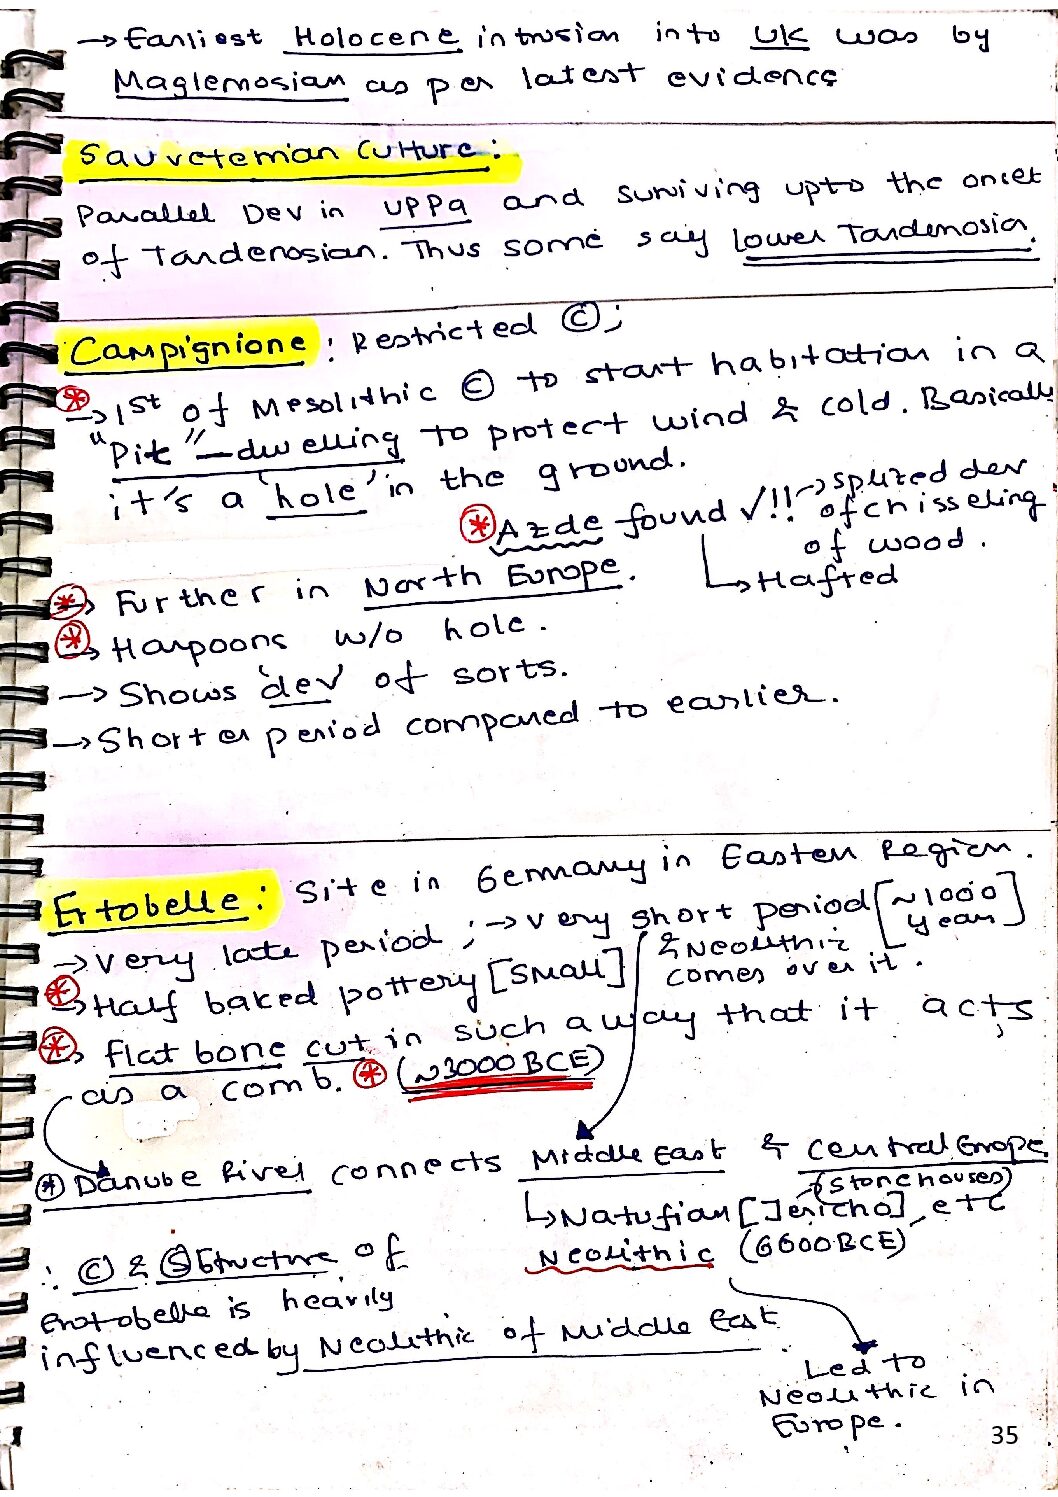 → Earliest Holocene intrusion into UK was by
Maglemosian as per latest evidence
Sauveterrian Culture:
Parallel Dev in UPPa and surviving upto the onset
of Tardenosian. Thus some say lower Tardenosian.
Campignione: Restricted ©;
→ 1st of Mesolithic © to start habitation in a
"Pit"-dwelling to protect wind & cold. Basically
it's a 'hole' in the ground.
* Azde found ✓!! → splized dev
of chisseling
of wood.
↳ Hafted
* → Further in North Europe.
* → Harpoons w/o hole.
→ Shows 'dev' of sorts.
→ Shorter period compared to earlier.
Ertobelle: Site in Germany in Eastern Region.
→ Very late period; → very short period [~1000 years]
& Neolithic
comes over it.
* → Half baked pottery [small]
* → flat bone cut in such a way that it acts
as a comb. * (~3000 BCE)
* Danube River connects Middle East & Central Europe
(stone houses)
↳ Natufian [Jericho], etc
Neolithic (6600 BCE)
∴ © & Ⓢ Structure of
Ertobelle is heavily
influenced by Neolithic of Middle East
Led to
Neolithic in
Europe.
35